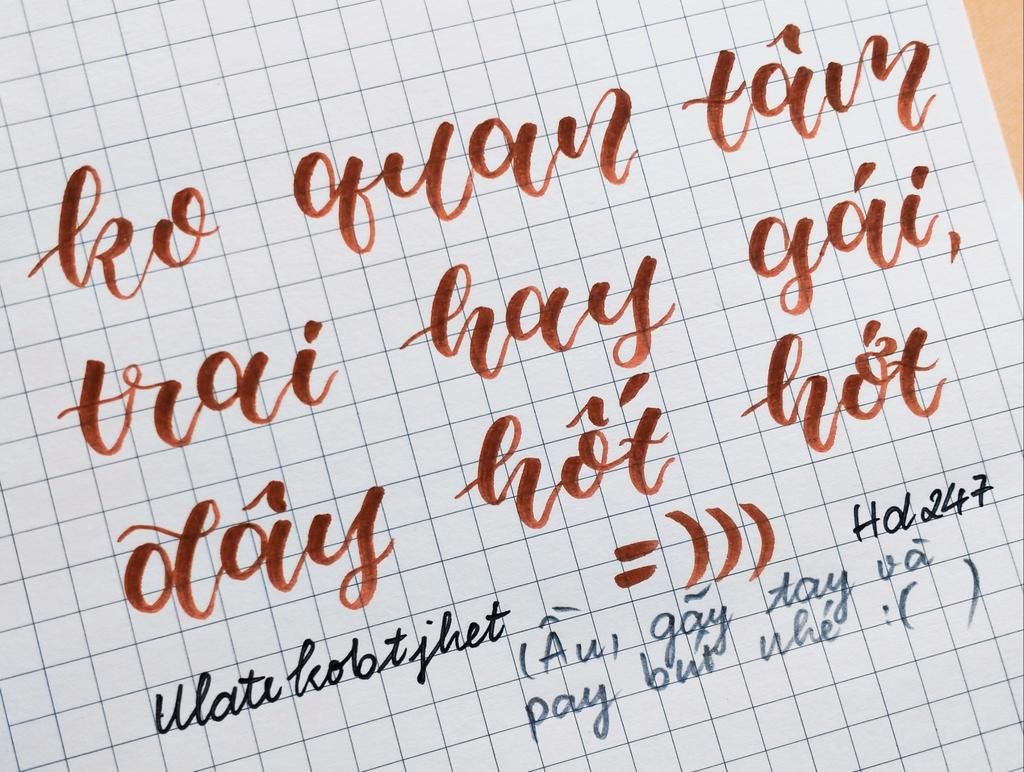 ko quan tâm
trai hay gái,
đây hốt hớt
=)))
Hd247
Ulatrkobtjhet
(Ầu, gãy tay và
pay bút nhé :( )